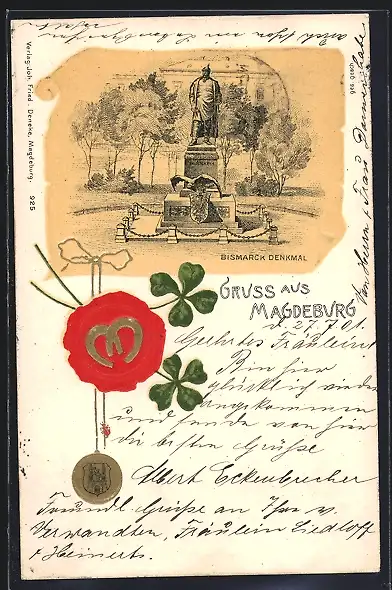 Verlag Joh. Fried. Deneke, Magdeburg. 925
BISMARCK DENKMAL
GRUSS AUS
MAGDEBURG
d. 27.7.01.
Geehrtes Fräulein!
Bin hier
glücklich wieder
angekommen
und sende von hier
die besten Grüße
Albert Eckenbrecher
Freundl Grüße an Ihre
Verwandten, Fräulein Liedloff
+ Heinerts.
von Herrn + Frau